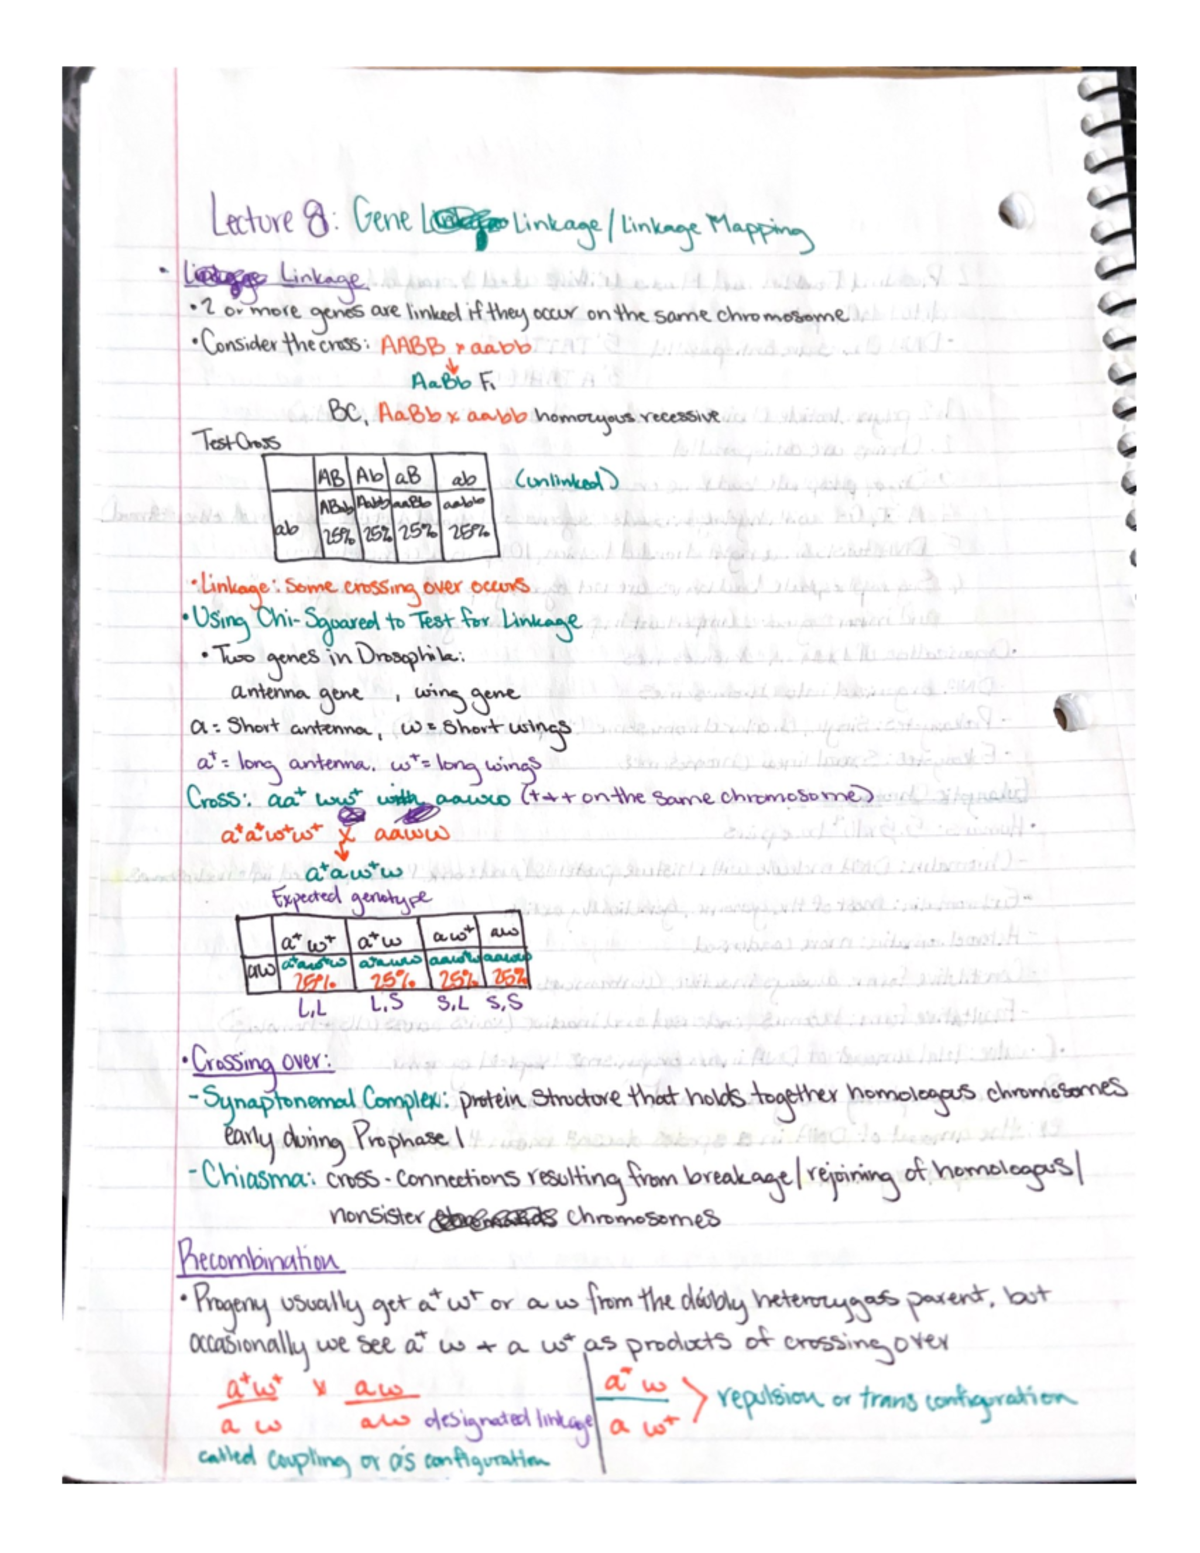 Lecture 8: Gene Linkage/Linkage Mapping
• Linkage
• 2 or more genes are linked if they occur on the same chromosome
• Consider the cross: AABB x aabb
AaBb F₁
BC₁ AaBb x aabb homozyous recessive
TestCross
AB Ab aB ab (unlinked)
ab
25% 25% 25% 25%
• Linkage: some crossing over occurs
• Using Chi-Squared to Test for Linkage
• Two genes in Drosophila:
antenna gene , wing gene
a = Short antenna, w = Short wings
a⁺ = long antenna. w⁺ = long wings
Cross: aa⁺ ww⁺ with aaww (+ + + on the same chromosome)
a⁺a⁺w⁺w⁺ x aaww
a⁺aw⁺w
Expected genotype
a⁺w⁺ a⁺w aw⁺ aw
aw a⁺aw⁺w a⁺aww aaw⁺w aaww
25% 25% 25% 25%
L,L L,S S,L S,S
• Crossing over:
- Synaptonemal Complex: protein structure that holds together homologous chromosomes
early during Prophase 1
- Chiasma: cross-connections resulting from breakage/rejoining of homologous/
nonsister chromosomes
Recombination
• Progeny usually get a⁺w⁺ or a w from the doubly heterozygass parent, but
occasionally we see a⁺ w + a w⁺ as products of crossing over
a⁺w⁺ x aw a⁺ w
a w aw designated linkage a w⁺ > repulsion or trans configuration
called coupling or cis configuration